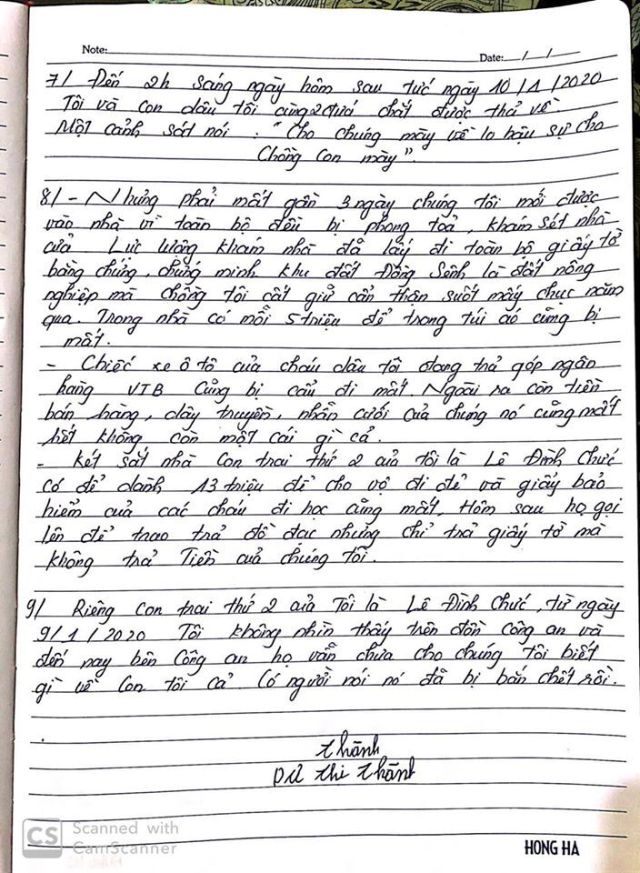 Note:
Date: / /
7/ Đến 2h sáng ngày hôm sau tức ngày 10/1/2020
Tôi và con dâu tôi cùng 2 đứa chắt được thả về
Một cảnh sát nói: "Cho chúng mày về lo hậu sự cho
Chồng con mày".
8/ - Nhưng phải mất gần 3 ngày chúng tôi mới được
vào nhà vì toàn bộ đều bị phong toả, khám sét nhà
cửa Lực lượng khám nhà đã lấy đi toàn bộ giấy tờ
bằng chứng, chứng minh khu đất Đồng Sênh là đất nông
nghiệp mà chồng tôi cất giữ cẩn thận suốt mấy chục năm
qua. Trong nhà có mỗi 5 triệu để trong túi áo cũng bị
mất.
- Chiếc xe ô tô của cháu dâu tôi đang trả góp ngân
hang VIB Cũng bị cẩu đi mất. Ngoài ra còn tiền
bán hàng, dây truyền, nhẫn cưới của chúng nó cũng mất
hết không còn một cái gì cả.
- Két sắt nhà con trai thứ 2 của tôi là Lê Đình Chức
có để dành 13 triệu để cho vợ đi đẻ và giấy bảo
hiểm của các cháu đi học cũng mất. Hôm sau họ gọi
lên để trao trả đồ đạc nhưng chỉ trả giấy tờ mà
không trả Tiền của chúng tôi.
9/ Riêng con trai thứ 2 của Tôi là Lê Đình Chức, từ ngày
9/1/2020 Tôi không nhìn thấy trên đồn Công an và
đến nay bên Công an họ vẫn chưa cho chúng tôi biết
gì về con tôi cả. Có người nói nó đã bị bắn chết rồi.
Thành
Dư Thị Thành
CS Scanned with
CamScanner
HONG HA